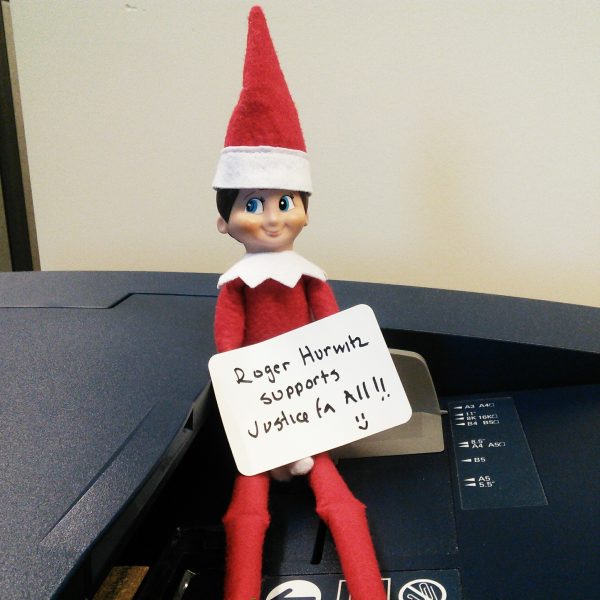 Roger Hurwitz
supports
Justice for All!!
A3 A4
11"
8K 16K
B4 B5
8.5"
A4 A5
B5
A5
5.5"